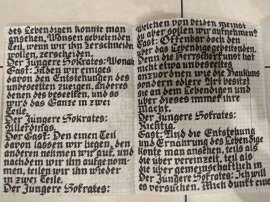 des Lebendigen konnte man
ansehen, Wonsen gebietenden
Teil, wenn wir ihn zerschneiden
wollen, zerscheiden.
Der Jungere Sokrates: Wonach
Gast: Jnden wir einiges
davon den Entstehungen des
unbeseelten zueignen, Anderes
denen des beseelten, und so
wird das Ganze in zwei
Teile.
Der Jungere Sokrates:
Allerdings.
Der Gast: Den einen Teil
davon lassen wir liegen, den
anderen nehmen wir auf, und
nachdem wir ihn aufgenom-
men, teilen wir ihn wieder
in zwei Teile.
Der Jungere Sokrates:
Welchen von beiden meinst
du aber sollen wir aufnehmen?
Gast: Offenbar doch den
der das Lebendige gebietenden.
Denn die Herrscherkunst hat
nicht etwa unbeseeltes
anzuordnen wie die Baukunst
sondern edlere Art besitzt
sie an dem Lebendigen und
über dieses immer ihre
Macht.
Der Jungere Sokrates:
Richtig.
Gast: Und die Entstehung
und Ernährung des Lebendigen
konte man ansehen, teils als
die über vereinzelt, teils als
die über gemeinschaftlich in
Der Jungere Sokrates: Ich will
es versuchen. Mich dunkt eine